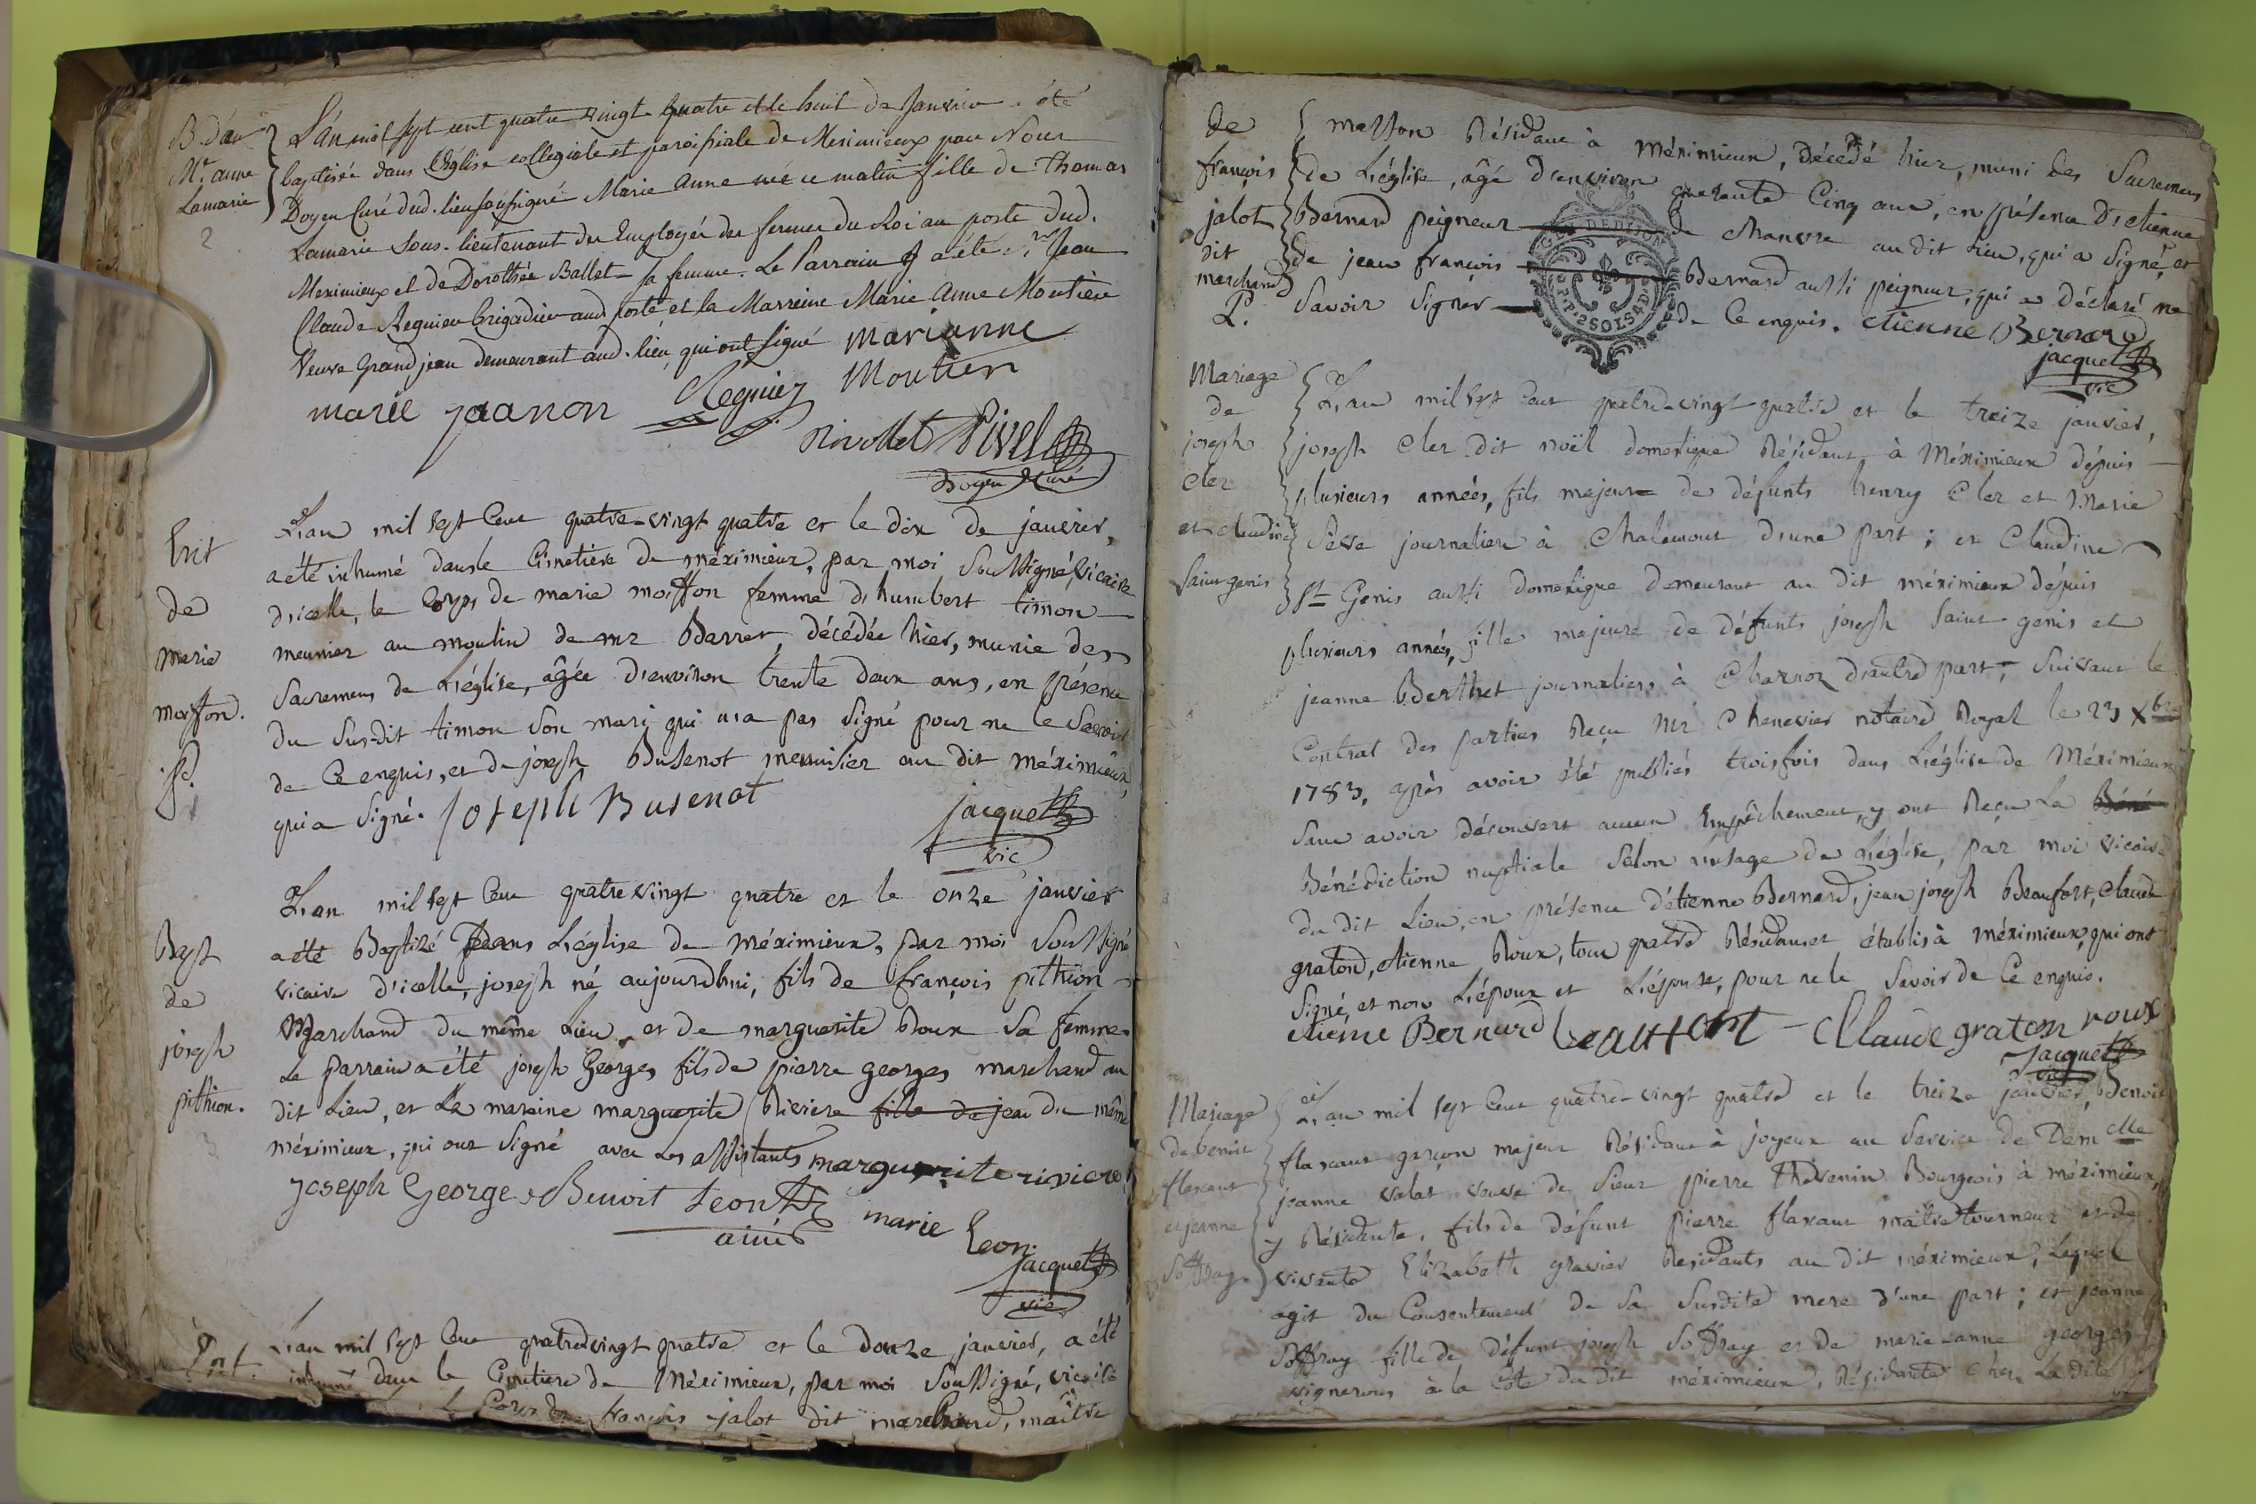 B. d'au
Me. anne
Lamarie
2
L'an mil sept cent quatre vingt quatre et le huit de Janvier a été
baptisée dans L'Eglise collegiale et paroissiale de Meximieux par Nous
Doyen Curé dud. lieu soussigné Marie Anne née ce matin fille de Thomas
Lamarie sous-lieutenant des Employés des fermes du Roi au poste dud.
Meximieux et de Dorothée Ballet sa femme. Le Parrain a été Sr. Jean
Claude Regnier brigadier aud. poste et la Marreine Marie Anne Moutier
Veuve Grandjean demeurant aud. lieu qui ont signé marianne
marie janon Regnier Moutier
Nivollet Rivel
Doyen Curé
Ent
de
marie
moisson.
L'an mil sept Cent quatre-vingt quatre et le dix de janvier,
a été inhumé dans le Cimetiere de méximieux, par moi Soussigné, vicaire
d'icelle, le Corps de marie moisson femme d'humbert timon
meunier au moulin de mr Barret, décédée hier, munie des
Sacremens de L'église, agée d'environ trente deux ans, en présence
du Sus-dit timon Son mari qui n'a pas Signé pour ne le Savoir
de Ce enquis, et de joseph Busenot menuisier au dit méximieux,
qui a Signé. Joseph Busenot
jacquet
vic
Bapt
de
joseph
pithion.
3
L'an mil sept Cent quatre vingt quatre et le onze janvier
a été Baptizé Dans L'église de méximieux, par moi Soussigné
vicaire d'icelle, joseph né aujourdhui, fils de françois pithion
Marchand du même Lieu, et de marguerite Roux Sa femme.
Le parrain a été joseph Georges fils de pierre georges marchand au
dit Lieu, et La maraine marguerite Riviere fille de jean du même
méximieux, qui ont Signé avec Les assistants marguerite riviere
joseph George Benoit Leon
ainé marie Leon
jacquet
vic
Ent.
L'an mil sept Cent quatre vingt quatre et le douze janvier, a été
inhumé dans le Cimetiere de Méximieux, par moi Soussigné, vicaire
Le Corps de françois jalot dit marchand, maître
de
françois
jalot
dit
marchand
masson Résidant à méximieux, Décédé hier, muni des Sacremens
de L'église, âgé d'environ quarante Cinq ans, en présence D'etienne
Bernard peigneur de chanvre au dit Lieu, qui a Signé, et
de jean françois Bernard aussi peigneur, qui a déclaré ne
Savoir Signer de Ce enquis. etienne Bernard
jacquet
vic
G. DE DIJON
2 SOLS 4 D
Mariage
de
joseph
Cler
et claudine
Saint genis
L'an mil sept Cent quatre-vingt quatre et le treize janvier,
joseph Cler dit noël domestique Résidant à Méximieux dépuis
plusieurs années, fils majeur de défunts henry Cler et Marie
Seve journaliers à Chalamont d'une part; et Claudine
St Genis aussi domestique demeurant au dit méximieux dépuis
plusieurs années, fille majeure de défunts joseph Saint genis et
jeanne Berthet journaliers à Charnoz d'autre part; Suivant le
Contrat des parties Reçu Mr Chenevier notaire Royal le 23 Xbre
1783, après avoir été publiés trois fois dans L'église de Méximieux
Sans avoir découvert aucun Empêchement, y ont Reçu La Béné
Bénédiction nuptiale Selon L'usage de L'église, par moi vicaire
du dit Lieu, en présence d'étienne Bernard, jean joseph Beaufort, Claude
graton, etienne Roux, tous quatre Résidans et établis à méximieux, qui ont
Signé, et non L'époux et L'épouse, pour ne le Savoir de Ce enquis.
etienne Bernard beaufort Claude graton roux
jacquet
vic
Mariage
de benoit
flaxant
et jeanne
Soffray
L'an mil sept Cent quatre-vingt quatre et le treize janvier, Benoit
flaxant garçon majeur Résidant à joyeux au Service de Demelle
jeanne valat veuve de Sieur pierre Thévenin Bourgeois à méximieux,
y Résidente, fils de défunt pierre flaxant maitre tourneur et de
vivante Elizabeth gravier Residants au dit méximieux, Lequel
agit du Consentement de Sa Susdite mere d'une part; et jeanne
Soffray fille de défunt joseph Soffray et de marie anne georges
vignerons à la Côte du dit méximieux, Résidante chez La dite